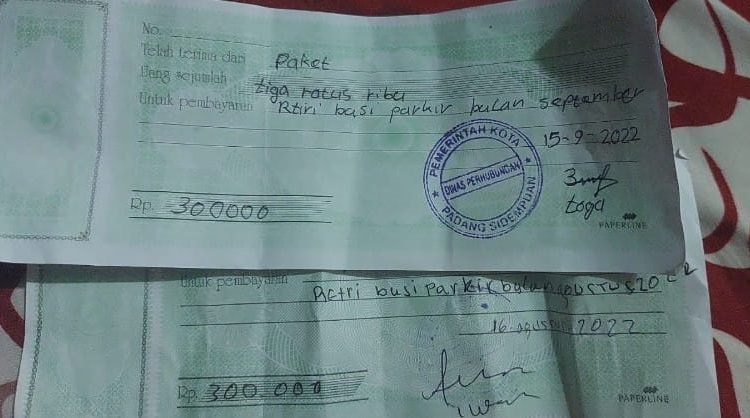 No.
Telah terima dari Paket
Uang sejumlah tiga ratus ribu
Untuk pembayaran Rtiri busi parkir bulan september
15-9-2022
PEMERINTAH KOTA
DINAS PERHUBUNGAN
PADANG SIDEMPUAN
toga
Rp. 300000
PAPERLINE
Untuk pembayaran Retri busi parkir bulan agustus 2022
16 agustus 2022
Rp. 300 000
iwan
PAPERLINE